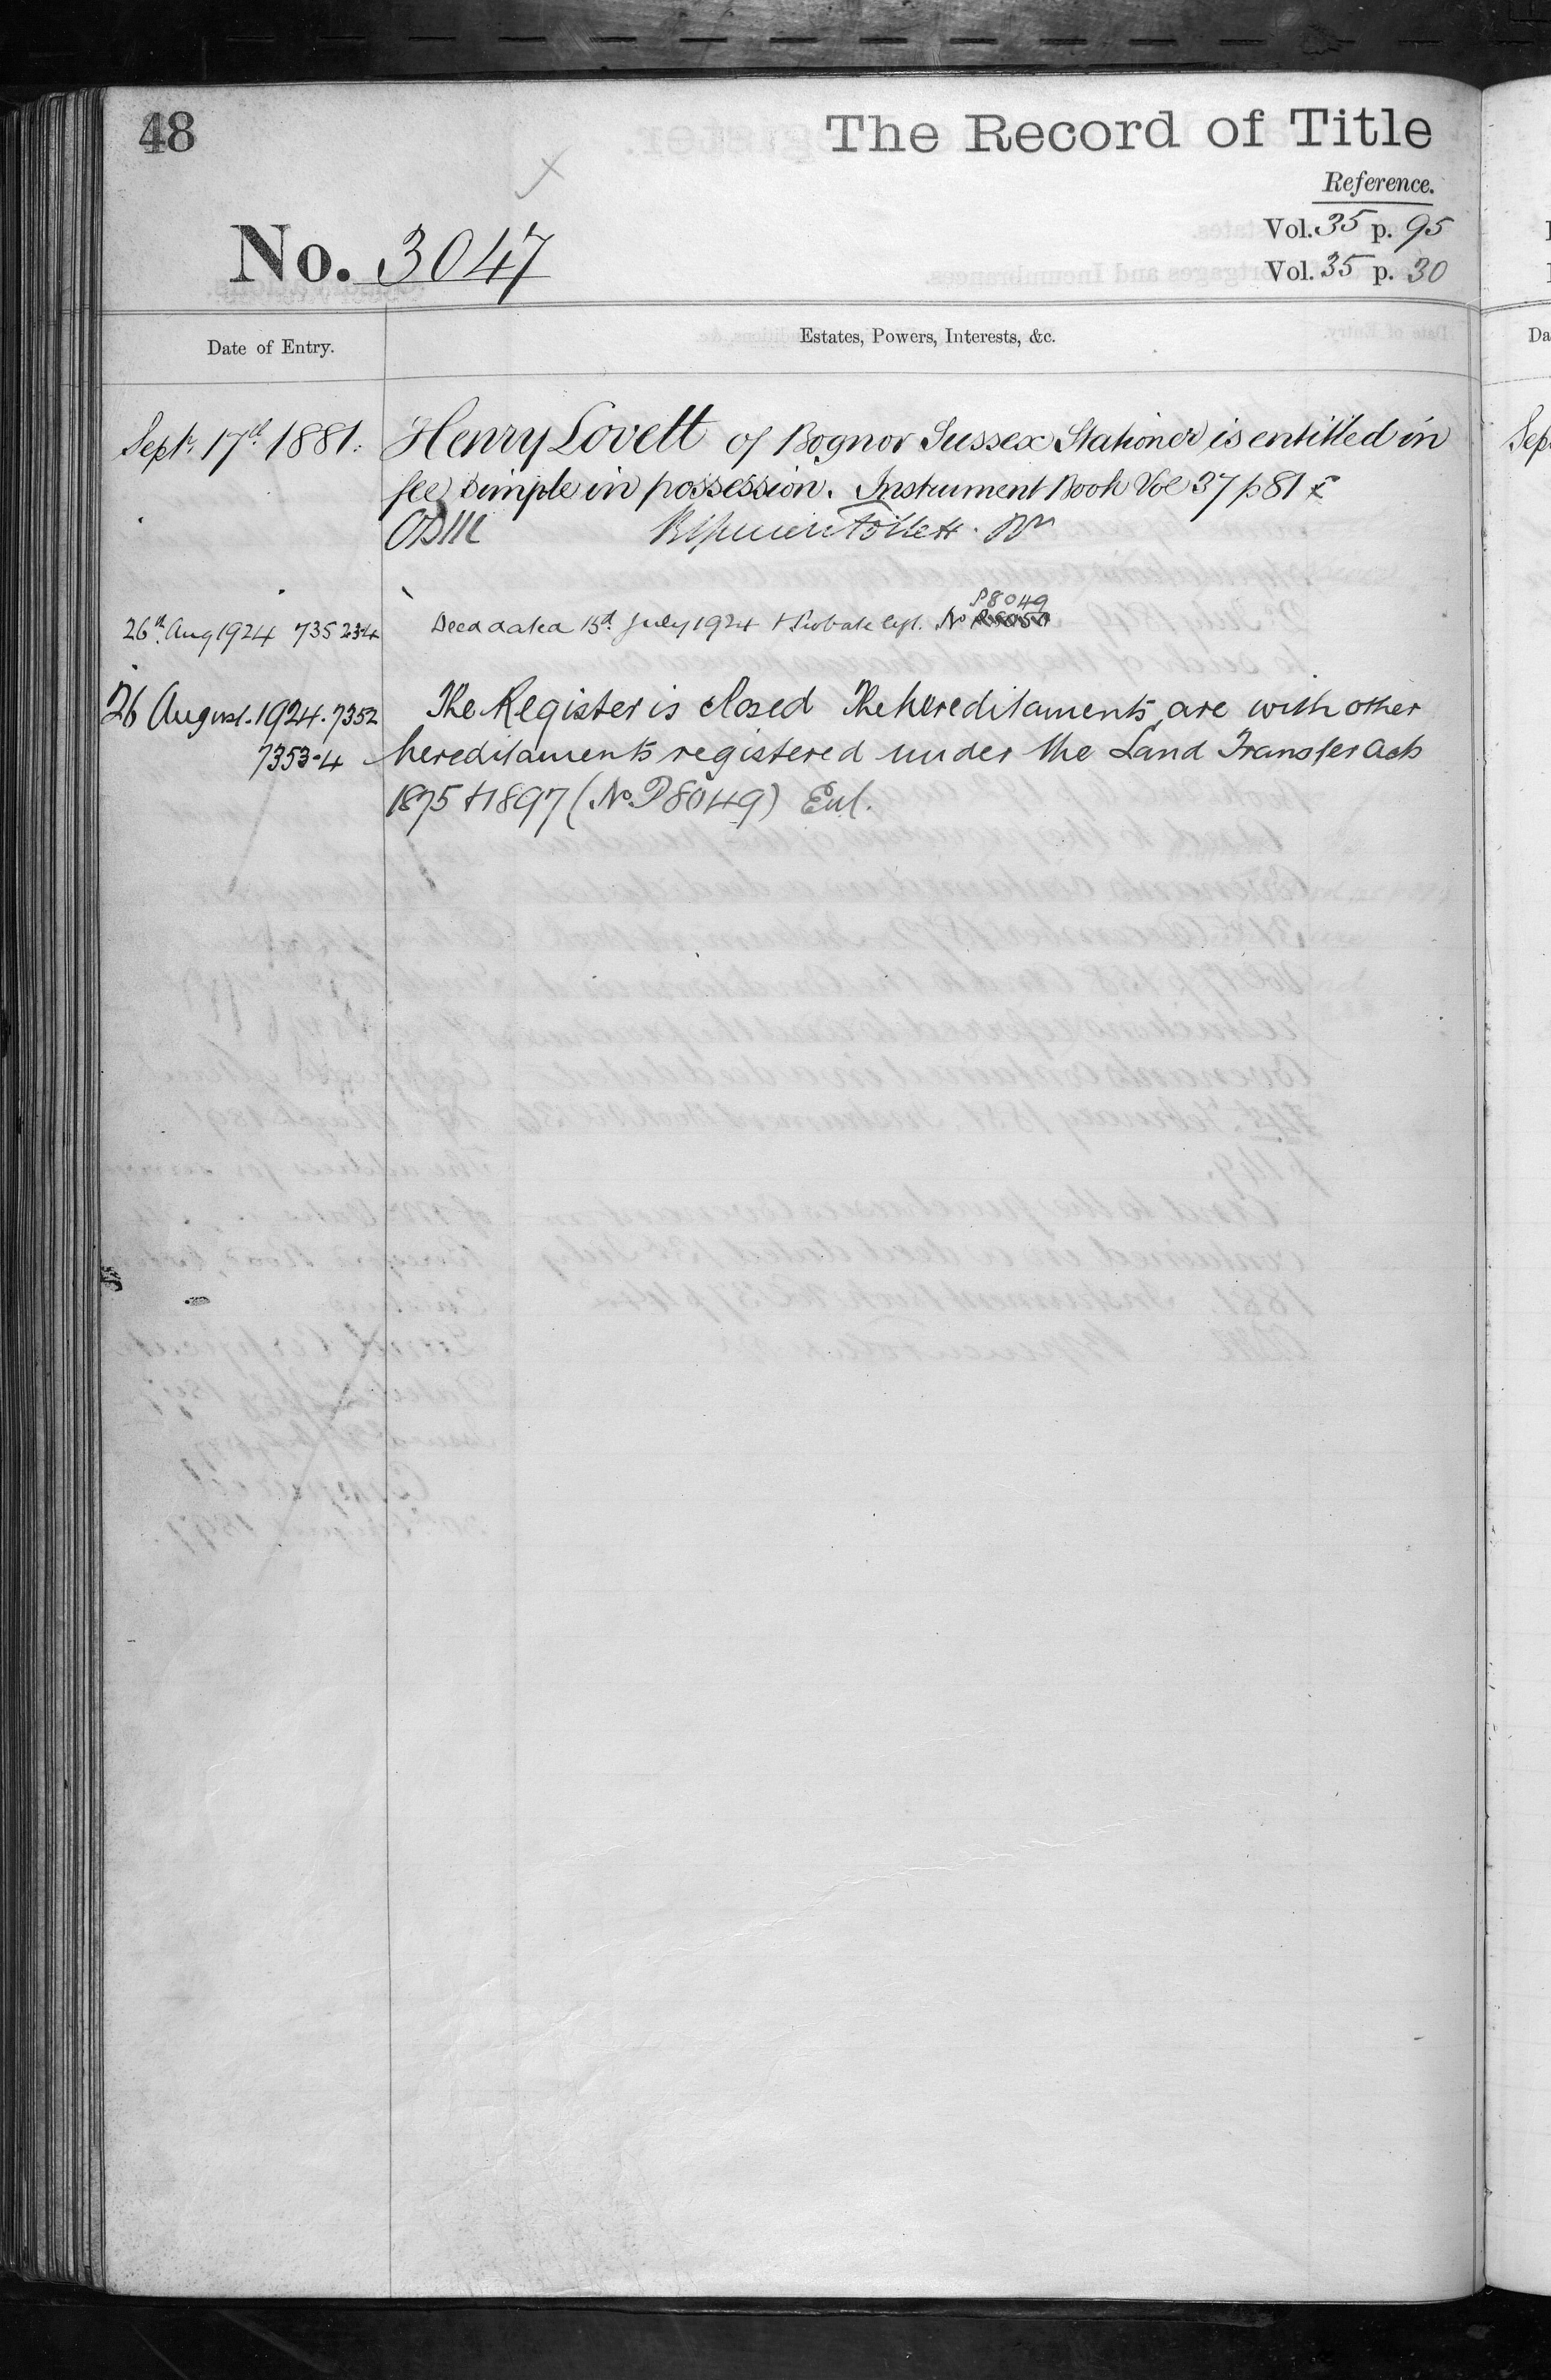 48
The Record of Title
Reference.
Vol. 35 p. 95
No. 3047
Vol. 35 p. 30
Date of Entry.
Estates, Powers, Interests, &c.
Sept. 17th 1881. Henry Lovett of Bognor Sussex Stationer is entitled in
fee simple in possession. Instrument Book Vol 37 p 81
P8049
26th Aug 1924 735234 Deed dated 15th July 1924 & Probate No
26 August. 1924. 7352 The Register is closed The hereditaments are with other
7353-4 hereditaments registered under the Land Transfer Acts
1875 & 1897 (No. P8049)